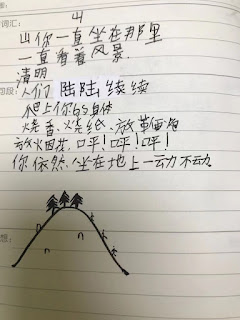 词汇:
山
山你一直坐在那里
一直看着风景.
清明
人们 陆陆续续
爬上你的身体
烧香、烧纸、放鞭炮
放烟花、呯!呯!呯!
你依然坐在地上一动不动
想: